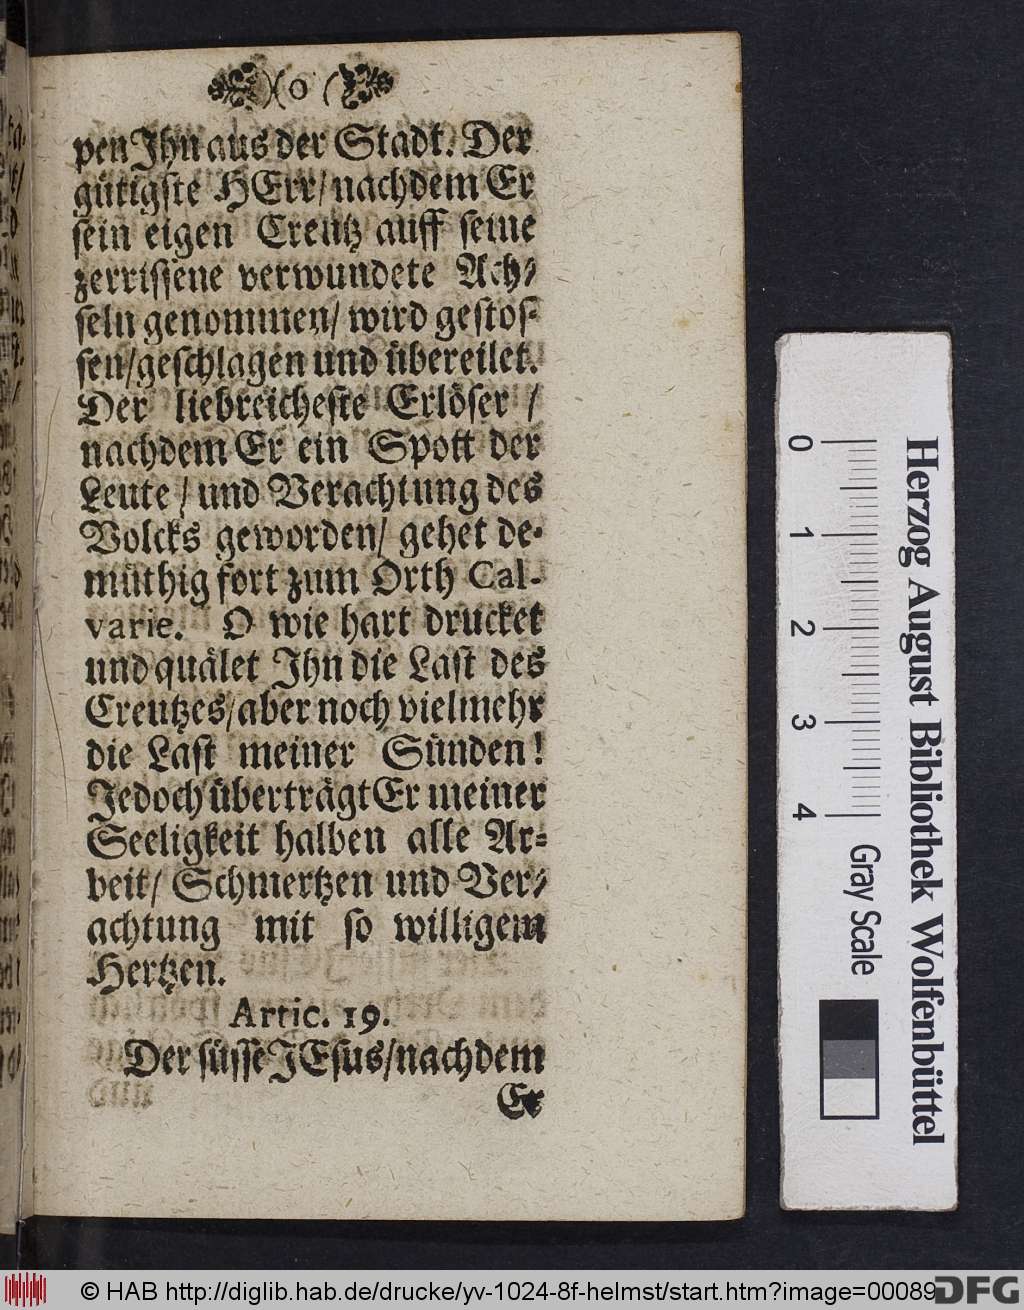 )( o (
pen Ihn aus der Stadt. Der
gütigste HErr / nachdem Er
sein eigen Creutz auff seine
zerrissene verwundete Ach-
seln genommen / wird gestos-
sen / geschlagen und übereilet.
Der liebreicheste Erlöser /
nachdem Er ein Spott der
Leute / und Verachtung des
Volcks geworden / gehet de-
müthig fort zum Orth Cal-
varie. O wie hart drucket
und quälet Ihn die Last des
Creutzes / aber noch vielmehr
die Last meiner Sünden!
Jedoch überträgt Er meiner
Seeligkeit halben alle Ar-
beit / Schmertzen und Ver-
achtung mit so willigem
Hertzen.
Artic. 19.
Der süsse JEsus / nachdem
Er
0 1 2 3 4
Gray Scale
Herzog August Bibliothek Wolfenbüttel
© HAB http://diglib.hab.de/drucke/yv-1024-8f-helmst/start.htm?image=00089
DFG